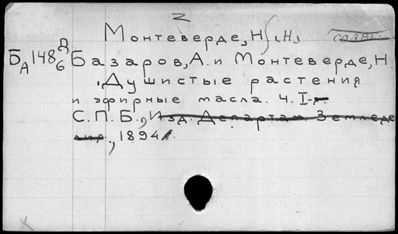 Монтеверде, Н. Н.
Б А 148 Д 6
Базаров, А. и Монтеверде, Н
Душистые растения
и эфирные масла. Ч. I-
С.П.Б., Изд. Департам. Земледе
лия, 1894